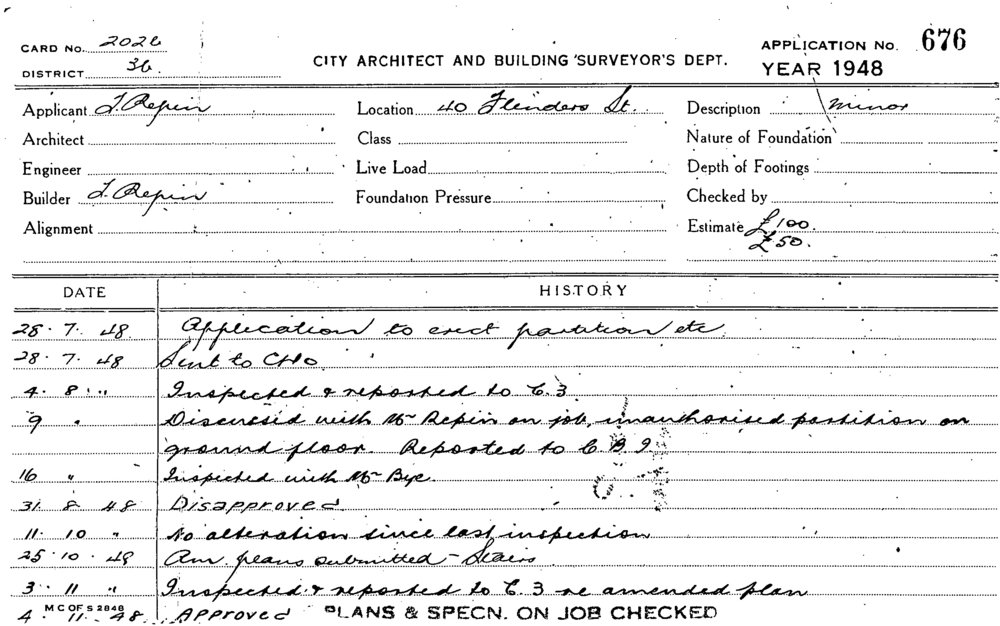 CARD No. 2026
DISTRICT 36.
CITY ARCHITECT AND BUILDING SURVEYOR'S DEPT.
APPLICATION No. 676
YEAR 1948
Applicant I. Repin
Location 40 Flinders St.
Description minor
Architect
Class
Nature of Foundation
Engineer
Live Load
Depth of Footings
Builder I. Repin
Foundation Pressure
Checked by
Alignment
Estimate £100.
£50.
DATE
HISTORY
28.7.48. Application to erect partition etc
28.7.48 Sent to CHO.
4.8." Inspected & reported to C.3.
9 " Discussed with Mr Repin on job, unauthorised partition on
ground floor. Reported to C.B.I.
16 " Inspected with Mr Bye.
31 8 48 Disapproved
11. 10 " No alteration since last inspection
25.10.48 Am. plans submitted - Stairs.
3 11 " Inspected & reported to C.3 re amended plan
M C OF S 2848
4. 11. 48. APPROVED PLANS & SPECN. ON JOB CHECKED